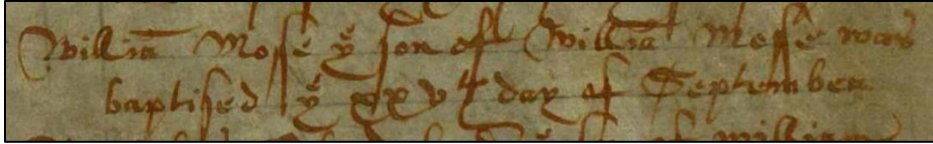 Williā Mosse yᵉ son of Williā Mosse was
baptised yᵉ xxvth day of September